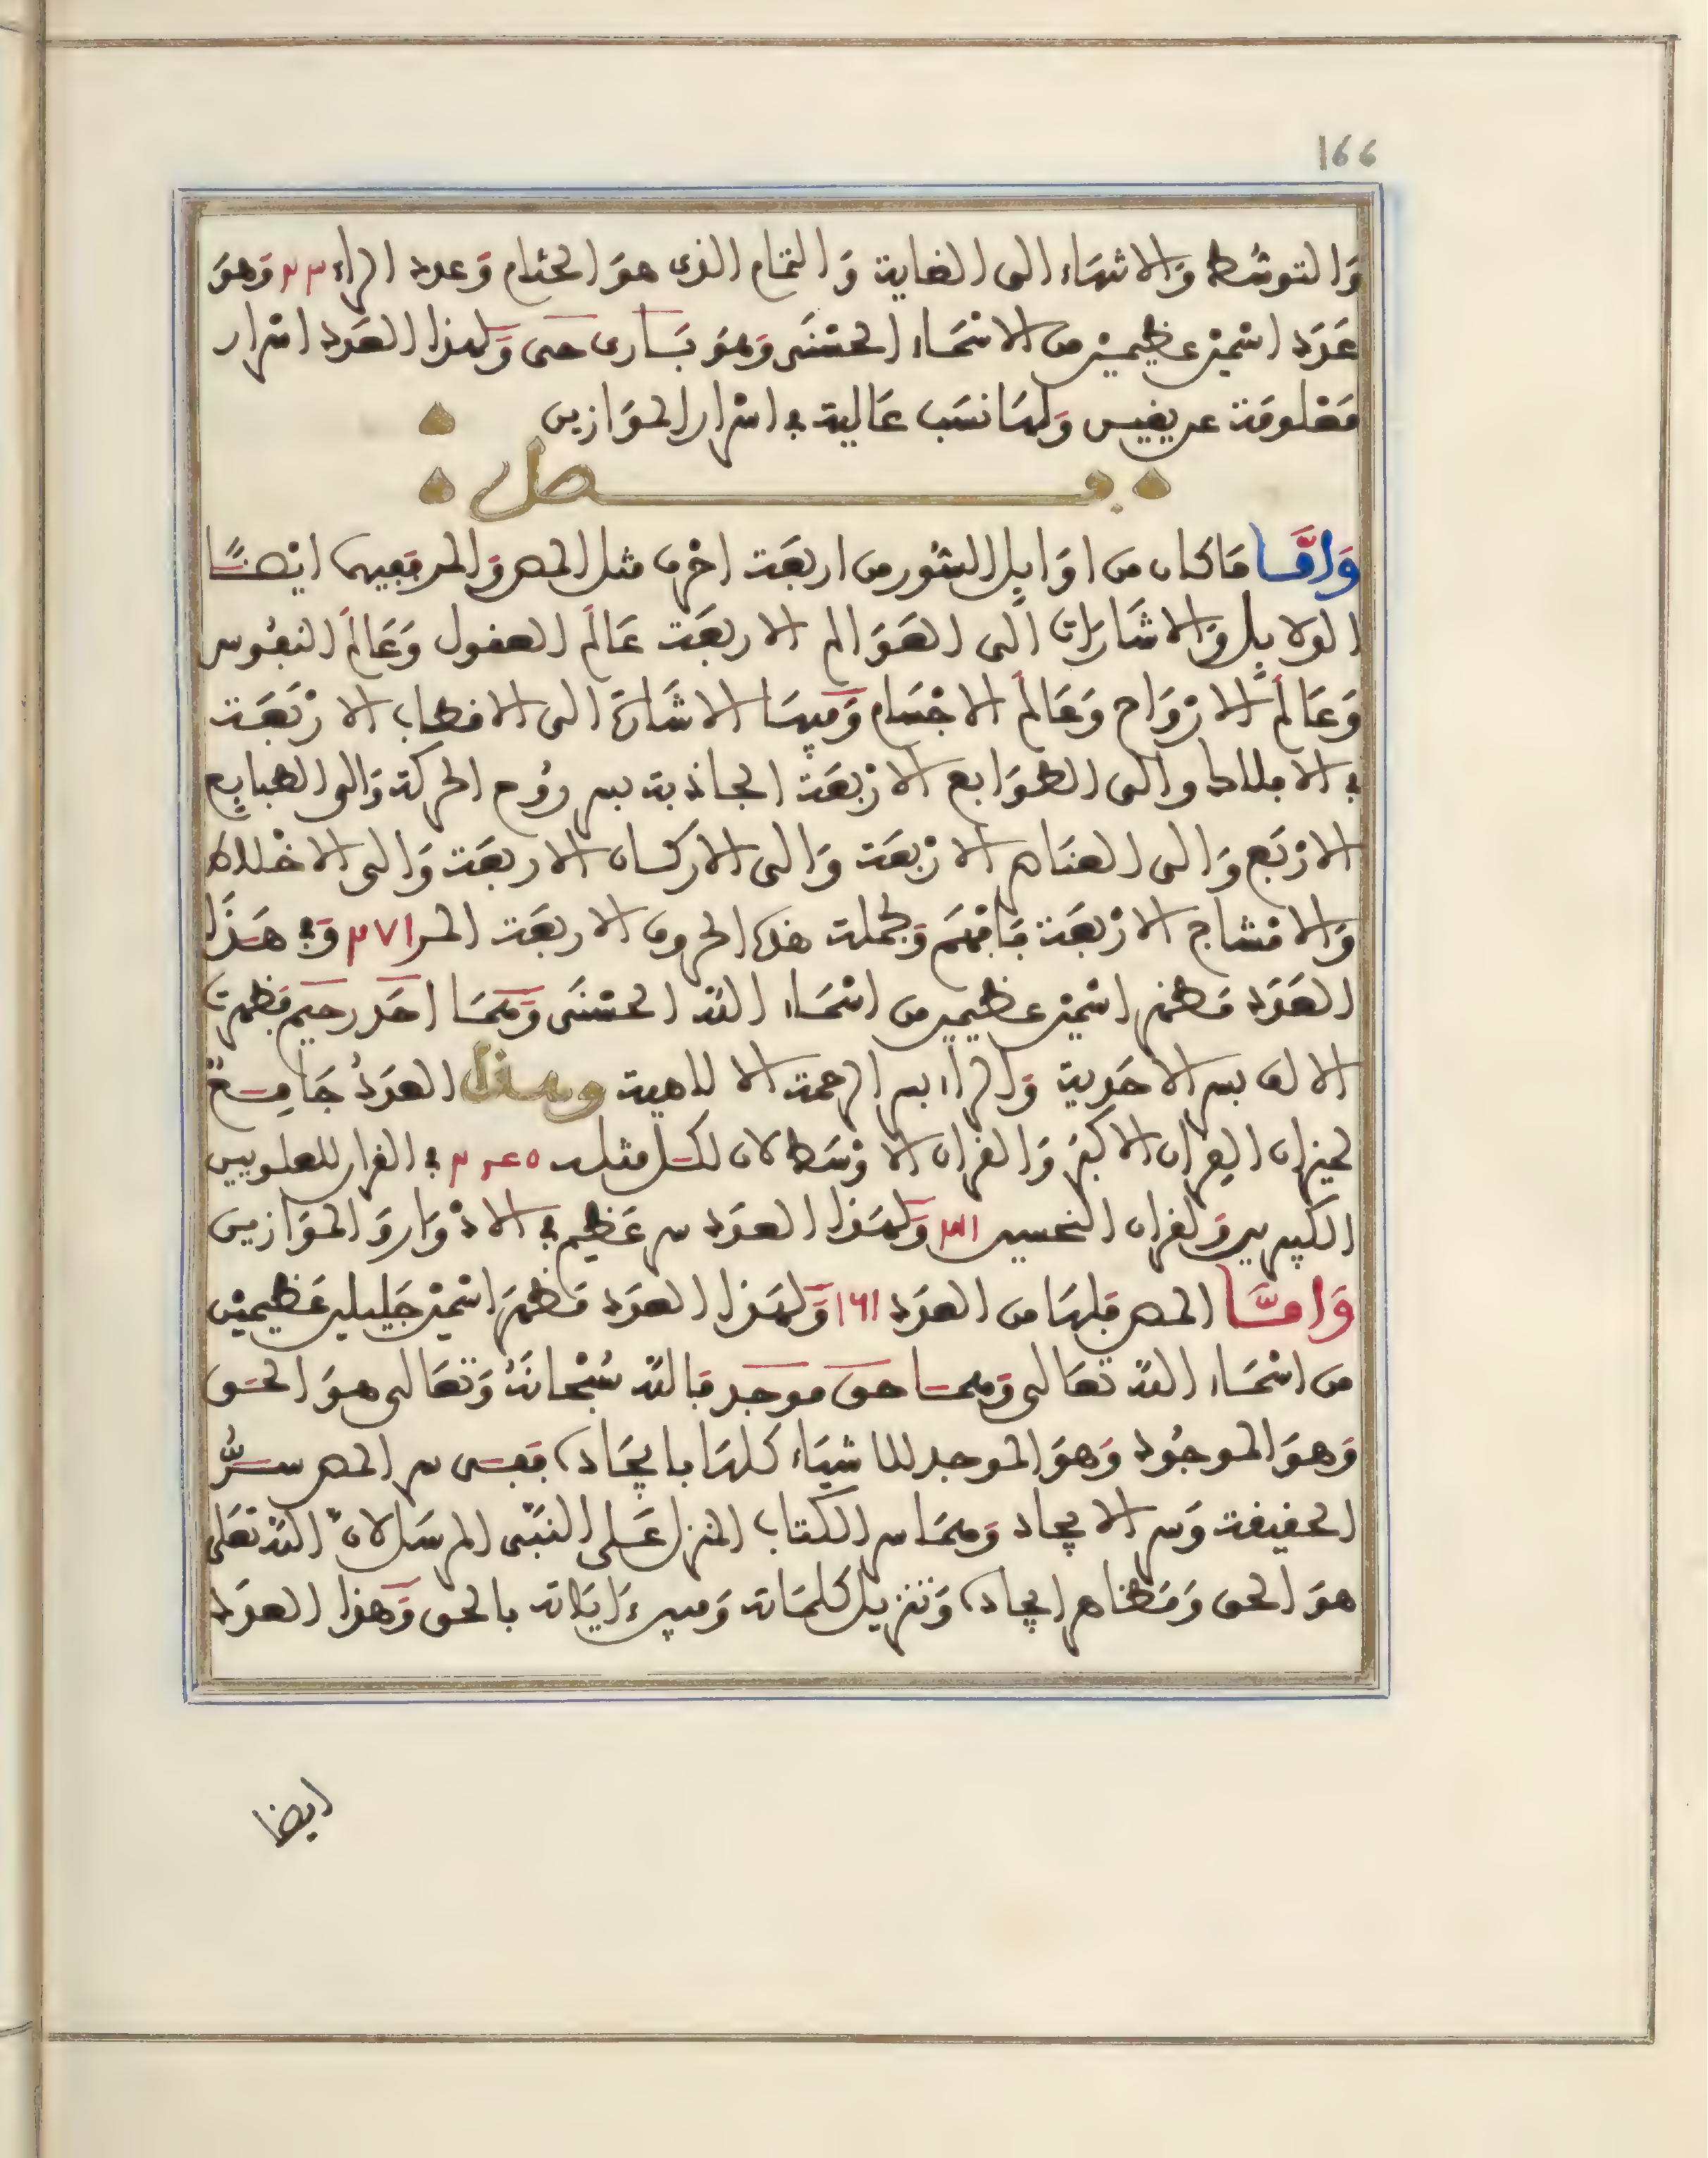 166
وَالتوسُّط وَالانتهَاء الى الغاية وَالتمَام الذى هوَ الختام وَعدد الراء ٢٣١ وَهوَ
عَدَد اسْمين عظيميْن من الاسْمَاء الحسْنَى وَهوَ بَارى حى وَلهذا العَدد اسْرار
مَعْلومَة عريفيس وَلهَا نسَب عَالية في اسْرار الموَازين
فصل
وَامَّا مَا كان من اوَايل السُّور من اربعَة احْرف مثل المص وَالمر ففيها ايْضًا
الدلايل وَالاشَارات الى العَوَالم الاربعَة عَالَم العقول وَعَالَم النفُوس
وَعَالَم الارْوَاح وَعَالَم الاجْسَام وَفيهَا الاشَارَة الى الاقطاب الارْبَعَة
في الافلاك وَالى الطوَابع الارْبعَة الجاذبة بسر رُوح الحركة وَالى الطبايع
الارْبَع وَالى العنَاصر الارْبعَة وَالى الاركان الاربعَة وَالى الاخْلاط
وَالامْشاج الارْبعَة فَافْهَم وَلجملة هذه الحروف الاربعَة المر ٢٧١ وَفي هَذَا
العَدَد مَظهر اسْمين عظيمين من اسْمَاء الله الحسْنَى وَهمَا احَد رحيم فظهرت
الالف بسر الاحَدية وَالراء بسر الرحمة الالاهية وهذا العدَدُ جَامِعٌ
لميزان القران الاكبَر وَالقران الاوْسَط لان لكل مثلث في القران للعلويين
الكبيرين وَلقران النحسين وَلهَذا العدَد سر عَظيم في الادْوَار وَالموَازين
وَامَّا المص فلهَا من العدَد ١٦١ وَلهَذا العدَد مَظهَر اسْمين جَليلين عَظيميْن
من اسْمَاء الله تعَالى وَهمَا حق موجد فَالله سُبْحَانَهُ وَتعَالى هوَ الحَق
وَهوَ الموجُود وَهوَ الموجد للاشيَاء كلهَا بايجَاده ففى سر المص سِرُّ
الحقيقة وَسر الايجاد وَهمَا سر الكتاب المنزل عَلى النبَّى المرسَل لانّ اللهَ تعَلى
هوَ الحق وَمَظاهر ايجاده وَتنزيل كلمَاته وَايَاته بالحق وَهذا العدَد
ايضا